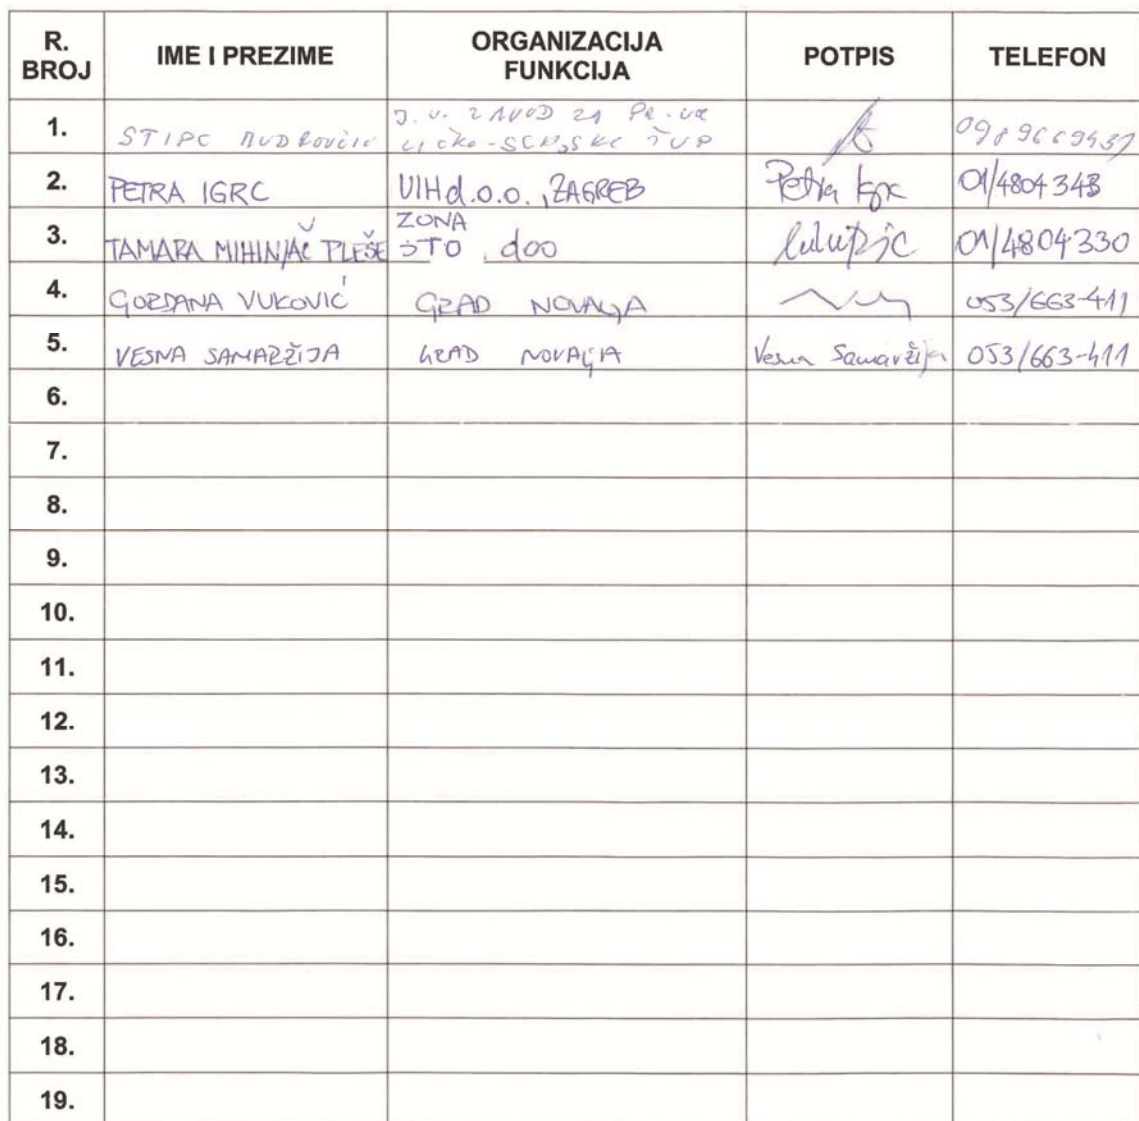 R. BROJ IME I PREZIME ORGANIZACIJA FUNKCIJA POTPIS TELEFON
1. STIPE MUDROVČIĆ J. U. ZAVOD ZA PR. UR LIČKO-SENJSKE ŽUP
2. PETRA IGRC UIH d.o.o., ZAGREB Petra Igrc 01/4804343
3. TAMARA MIHINJAČ PLEŠE ZONA STO doo 01/4804330
4. GORDANA VUKOVIĆ GRAD NOVALJA 053/663-411
5. VESNA SAMARŽIJA GRAD NOVALJA Vesna Samaržija 053/663-411
6.
7.
8.
9.
10.
11.
12.
13.
14.
15.
16.
17.
18.
19.